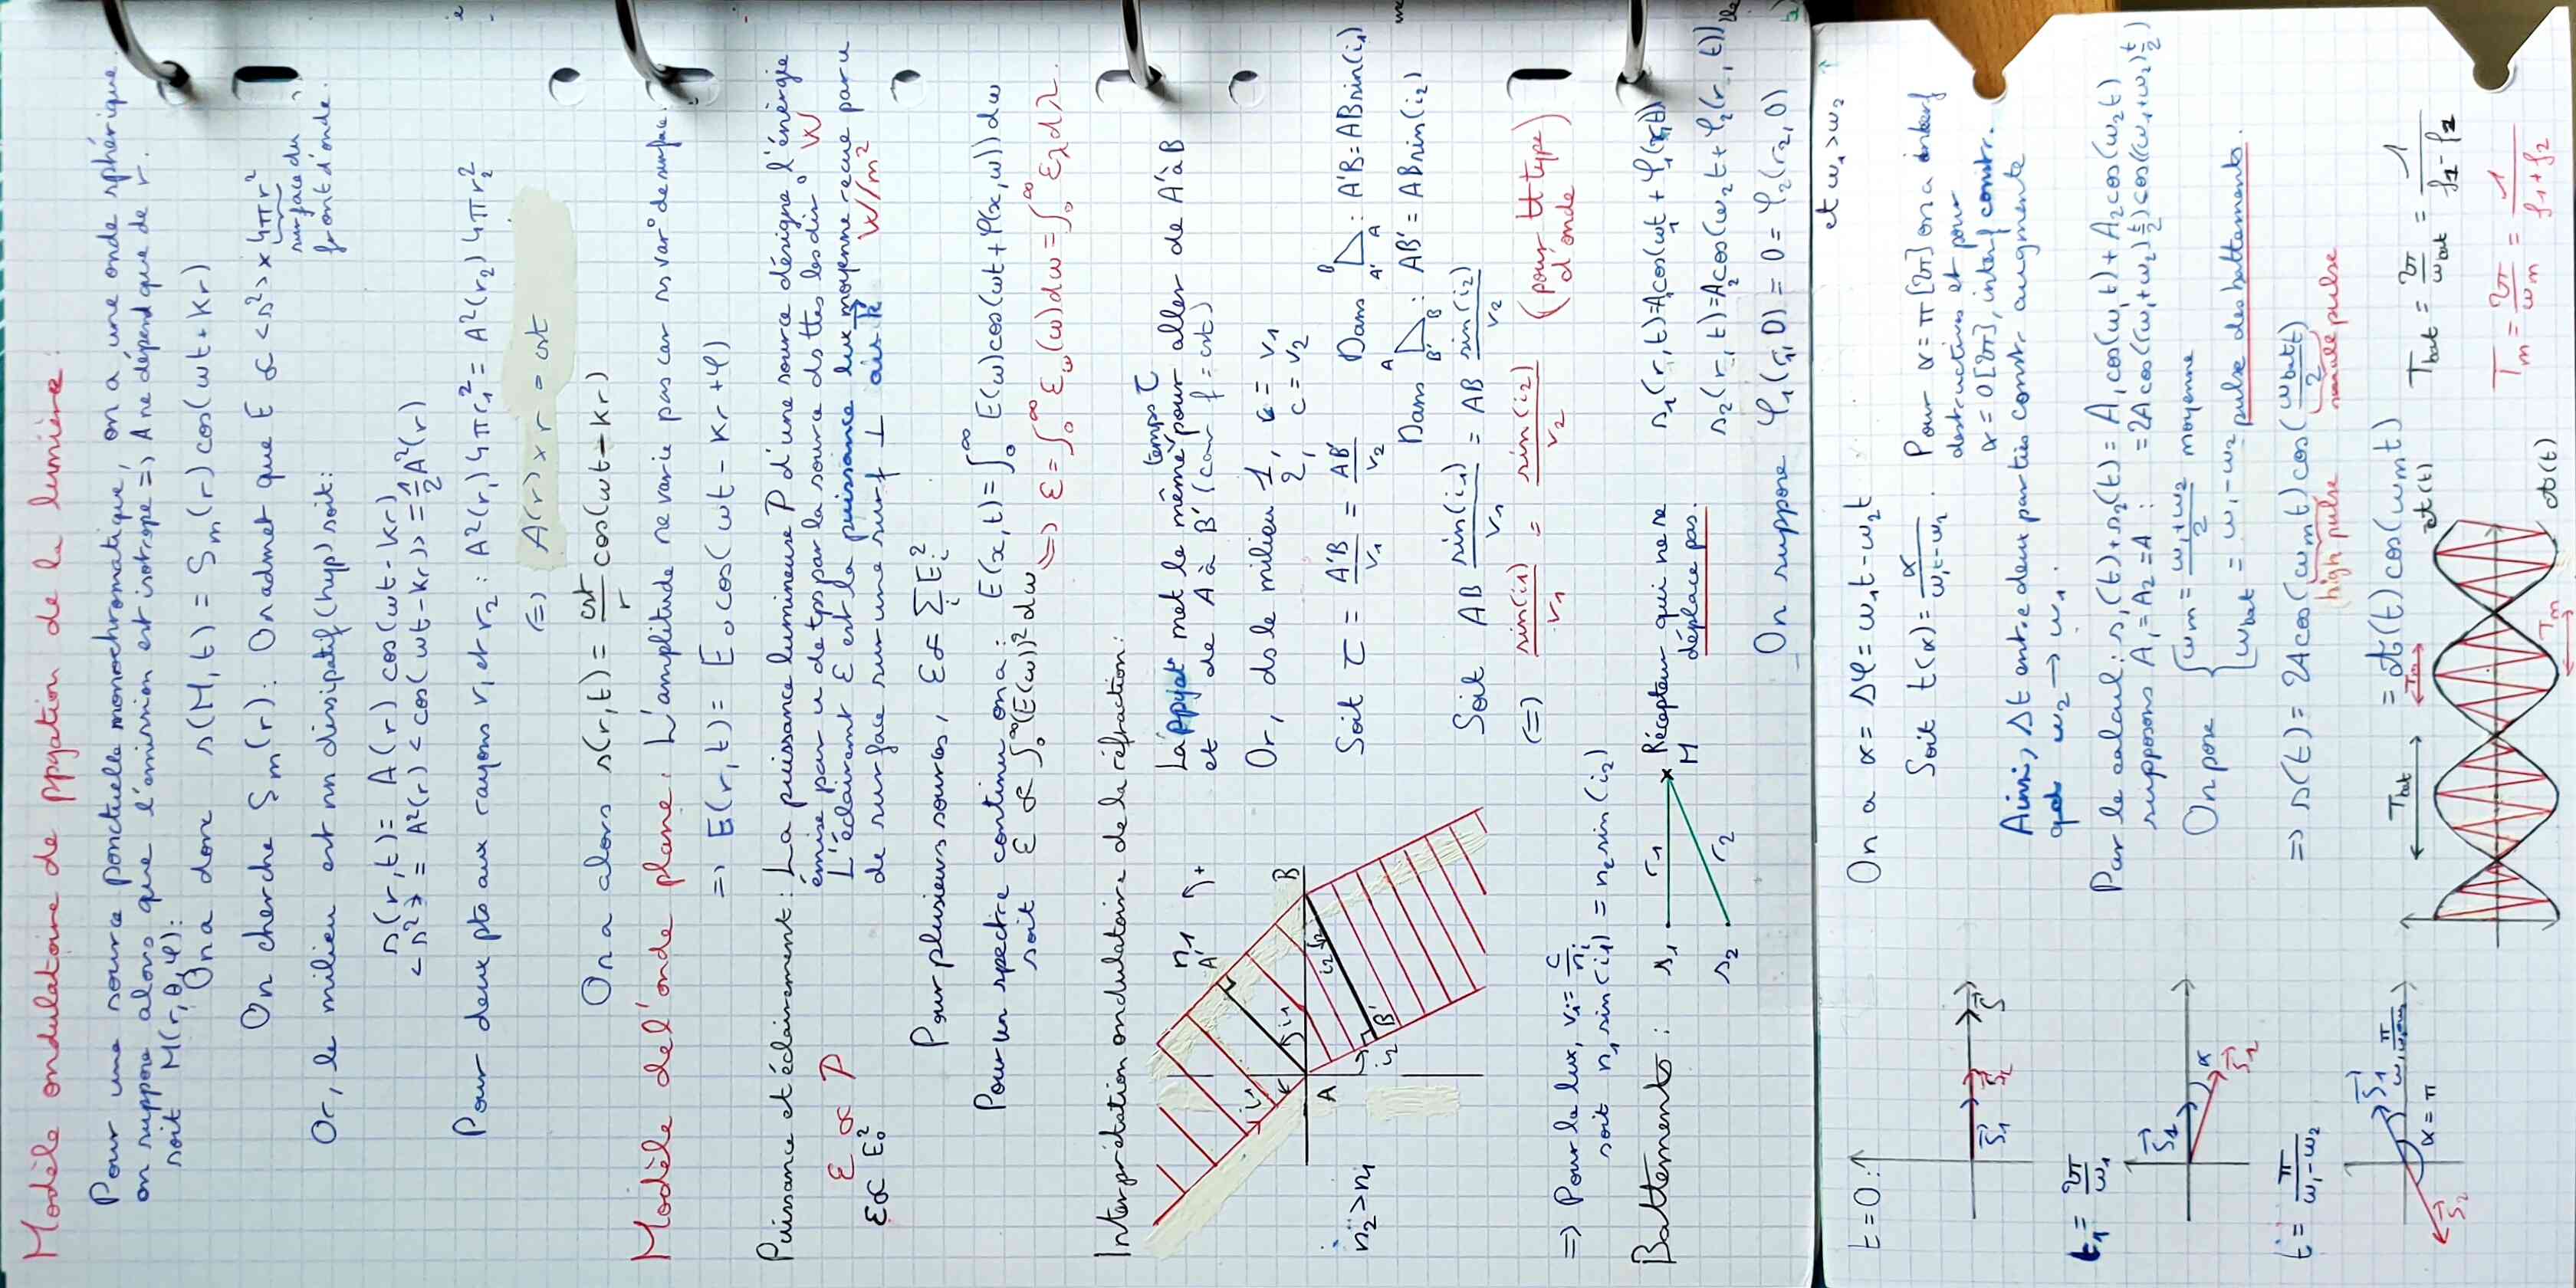 Modèle ondulatoire de ppgation de la lumière :
Pour une source ponctuelle monochromatique, on a une onde sphérique.
on suppose alors que l'émission est isotrope => A ne dépend que de r.
soit M(r, θ, φ) :
On a donc s(M, t) = Sm(r) cos(ωt + kr)
On cherche Sm(r) : On admet que E ∝ <s²> × 4πr²
surface du
front d'onde.
Or, le milieu est nn dissipatif (hyp) soit :
s(r, t) = A(r) cos(ωt - kr)
<s²> = A²(r) <cos(ωt - kr)> = 1/2 A²(r)
Pour deux pts aux rayons r₁ et r₂ : A²(r₁) 4πr₁² = A²(r₂) 4πr₂²
(=) A(r) × r = cst
On a alors s(r, t) = cst/r cos(ωt - kr)
Modèle de l'onde plane : L'amplitude ne varie pas car ns var° de surface.
=> E(r, t) = E₀ cos(ωt - kr + φ)
Puissance et éclairement : La puissance lumineuse P d'une source désigne l'énergie
émise par u de tps par la source ds ttes les dir° W
L'éclairement Ɛ est la puissance lux moyenne reçue par u W/m²
de surface sur une surf ⊥ à k
Ɛ ∝ P
Ɛ ∝ E₀²
Pour plusieurs sources, Ɛ ∝ Σᵢ Eᵢ²
Pour un spectre continu on a : E(x, t) = ∫₀^∞ E(ω) cos(ωt + φ(x, ω)) dω
soit Ɛ ∝ ∫₀^∞ (E(ω))² dω <=> Ɛ = ∫₀^∞ Ɛω(ω) dω = ∫₀^∞ Ɛλ dλ.
Interprétation ondulatoire de la réfraction :
n₁ +
A'
i₁
i₁
A
B
i₂
i₂
B'
n₂ > n₁
La ppgat° met le même temps τ pour aller de A' à B
et de A à B' (car f = cst)
Or, ds le milieu 1, c = v₁
2, c = v₂
Soit τ = A'B/v₁ = AB'/v₂
Dans B A' A : A'B = AB sin(i₁)
Dans A B' B : AB' = AB sin(i₂)
Soit AB sin(i₁)/v₁ = AB sin(i₂)/v₂
(=) sin(i₁)/v₁ = sin(i₂)/v₂ (pour tt type d'onde)
=> Pour la lux, vᵢ = c/nᵢ
soit n₁ sin(i₁) = n₂ sin(i₂)
Battements :
s₁ r₁ M
s₂ r₂
Récepteur qui ne se
déplace pas.
s₁(r, t) = A₁ cos(ω₁t + φ₁(r₁, t))
s₂(r, t) = A₂ cos(ω₂t + φ₂(r, t))
On suppose φ₁(r₁, 0) = 0 = φ₂(r₂, 0)
et ω₁ > ω₂
t = 0 :
S₁ S₂ S
t₁ = 2π/ω₁
S₁ α S₂
t = π/(ω₁ - ω₂)
S₁
α = π
S₂
On a α = Δφ = ω₁t - ω₂t
Soit t(α) = α/(ω₁ - ω₂). Pour α = π [2π] on a interf
destructives et pour
α = 0 [2π], interf constr.
Ainsi, Δt entre deux parties constr augmente
qd ω₂ → ω₁.
Par le calcul : s₁(t) + s₂(t) = A₁ cos(ω₁t) + A₂ cos(ω₂t)
supposons A₁ = A₂ = A : = 2A cos((ω₁+ω₂) t/2) cos((ω₁+ω₂) t/2)
On pose { ωm = (ω₁+ω₂)/2 moyenne
ωbat = ω₁ - ω₂ pulse des battements.
=> s(t) = 2A cos(ωm t) cos(ωbat t/2)
high pulse
= A(t) cos(ωm t)
Tbat Tm
A(t)
A(t)
Tm
Tbat = 2π/ωbat = 1/(f₁ - f₂)
Tm = 2π/ωm = 1/(f₁ + f₂)